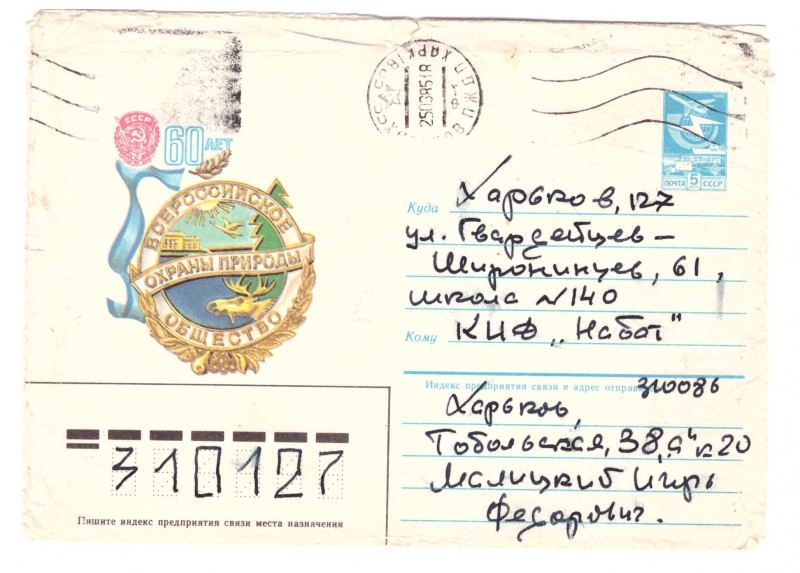 СССР
60 ЛЕТ
ВСЕРОССИЙСКОЕ
ОХРАНЫ ПРИРОДЫ
ОБЩЕСТВО
25 03 85 18
ПОЧТА 5 СССР
Куда Харьков, 127
ул. Гвардейцев-
Широнинцев, 61,
школа N140
Кому КИФ „Набат"
Индекс предприятия связи и адрес
310086
Харьков,
Тобольская, 38, „а" к 20
Малицкий Игорь
Федорович.
310127
Пишите индекс предприятия связи места назначения